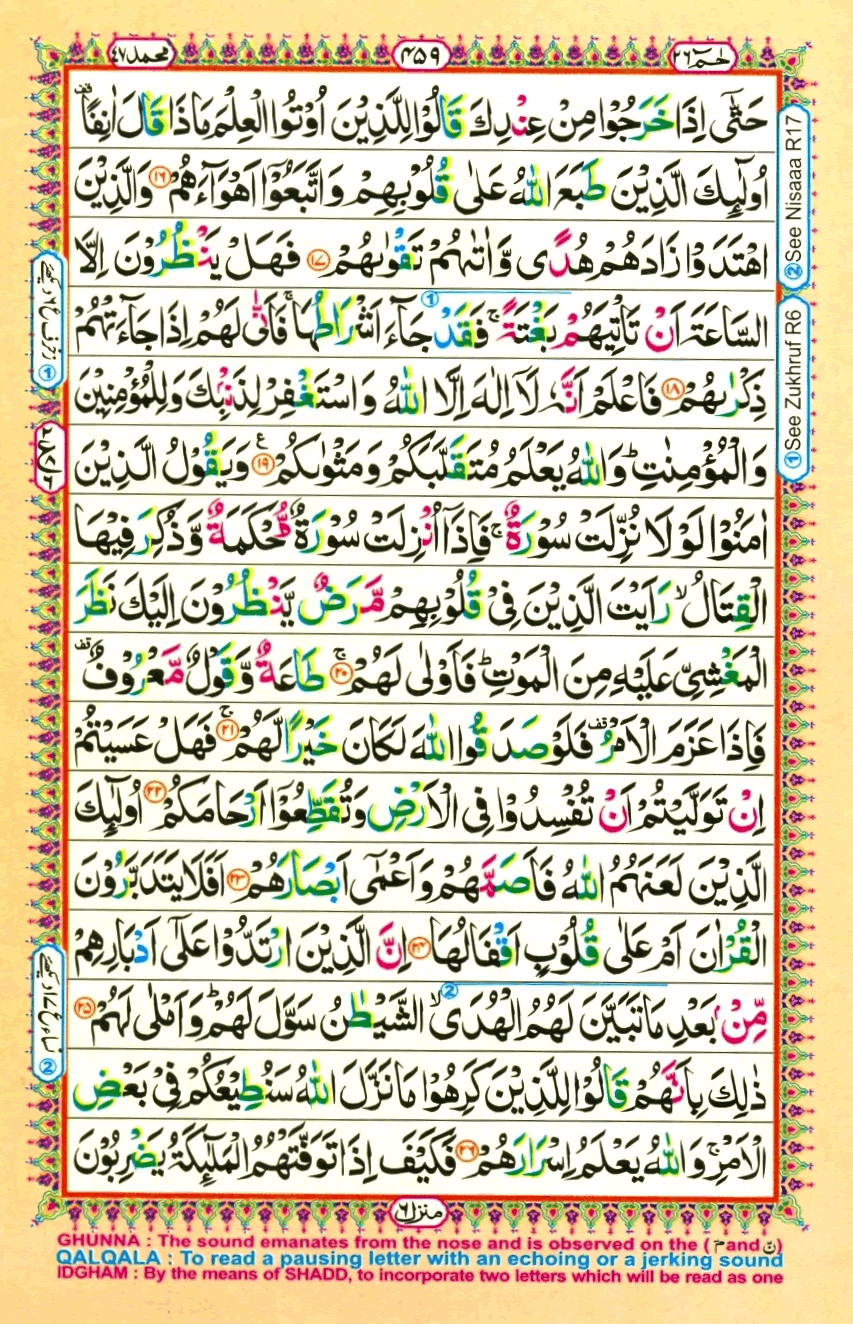 محمد ٤٧
٤٥٩
حٰمٓ ٢٦
حَتّٰۤى اِذَا خَرَجُوْا مِنْ عِنْدِكَ قَالُوْا لِلَّذِيْنَ اُوْتُوا الْعِلْمَ مَاذَا قَالَ اٰنِفًا ۫
اُولٰٓئِكَ الَّذِيْنَ طَبَعَ اللّٰهُ عَلٰى قُلُوْبِهِمْ وَاتَّبَعُوْۤا اَهْوَآءَهُمْ ١٦ وَالَّذِيْنَ
اهْتَدَوْا زَادَهُمْ هُدًى وَّاٰتٰىهُمْ تَقْوٰىهُمْ ١٧ فَهَلْ يَنْظُرُوْنَ اِلَّا
السَّاعَةَ اَنْ تَاْتِيَهُمْ بَغْتَةً ۚ فَقَدْ جَآءَ اَشْرَاطُهَا ۚ فَاَنّٰى لَهُمْ اِذَا جَآءَتْهُمْ
ذِكْرٰىهُمْ ١٨ فَاعْلَمْ اَنَّهٗ لَاۤ اِلٰهَ اِلَّا اللّٰهُ وَاسْتَغْفِرْ لِذَنْۢبِكَ وَلِلْمُؤْمِنِيْنَ
وَالْمُؤْمِنٰتِ ؕ وَاللّٰهُ يَعْلَمُ مُتَقَلَّبَكُمْ وَمَثْوٰىكُمْ ١٩ ع وَيَقُوْلُ الَّذِيْنَ
اٰمَنُوْا لَوْلَا نُزِّلَتْ سُوْرَةٌ ۚ فَاِذَاۤ اُنْزِلَتْ سُوْرَةٌ مُّحْكَمَةٌ وَّذُكِرَ فِيْهَا
الْقِتَالُ ۙ رَاَيْتَ الَّذِيْنَ فِيْ قُلُوْبِهِمْ مَّرَضٌ يَّنْظُرُوْنَ اِلَيْكَ نَظَرَ
الْمَغْشِيِّ عَلَيْهِ مِنَ الْمَوْتِ ؕ فَاَوْلٰى لَهُمْ ۚ ٢٠ طَاعَةٌ وَّقَوْلٌ مَّعْرُوْفٌ ۫
فَاِذَا عَزَمَ الْاَمْرُ ۫ فَلَوْ صَدَقُوا اللّٰهَ لَكَانَ خَيْرًا لَّهُمْ ۚ ٢١ فَهَلْ عَسَيْتُمْ
اِنْ تَوَلَّيْتُمْ اَنْ تُفْسِدُوْا فِي الْاَرْضِ وَتُقَطِّعُوْۤا اَرْحَامَكُمْ ٢٢ اُولٰٓئِكَ
الَّذِيْنَ لَعَنَهُمُ اللّٰهُ فَاَصَمَّهُمْ وَاَعْمٰۤى اَبْصَارَهُمْ ٢٣ اَفَلَا يَتَدَبَّرُوْنَ
الْقُرْاٰنَ اَمْ عَلٰى قُلُوْبٍ اَقْفَالُهَا ٢٤ اِنَّ الَّذِيْنَ ارْتَدُّوْا عَلٰۤى اَدْبَارِهِمْ
مِّنْۢ بَعْدِ مَا تَبَيَّنَ لَهُمُ الْهُدَى ۙ الشَّيْطٰنُ سَوَّلَ لَهُمْ ؕ وَاَمْلٰى لَهُمْ ٢٥
ذٰلِكَ بِاَنَّهُمْ قَالُوْا لِلَّذِيْنَ كَرِهُوْا مَا نَزَّلَ اللّٰهُ سَنُطِيْعُكُمْ فِيْ بَعْضِ
الْاَمْرِ ۚ وَاللّٰهُ يَعْلَمُ اِسْرَارَهُمْ ٢٦ فَكَيْفَ اِذَا تَوَفَّتْهُمُ الْمَلٰٓئِكَةُ يَضْرِبُوْنَ
② See Nisaaa R17
① See Zukhruf R6
① زخرف ع ٦ دیکھئے
② نساء ع ١٧ دیکھئے
منزل ٦
GHUNNA : The sound emanates from the nose and is observed on the ( م and ن )
QALQALA : To read a pausing letter with an echoing or a jerking sound
IDGHAM : By the means of SHADD, to incorporate two letters which will be read as one